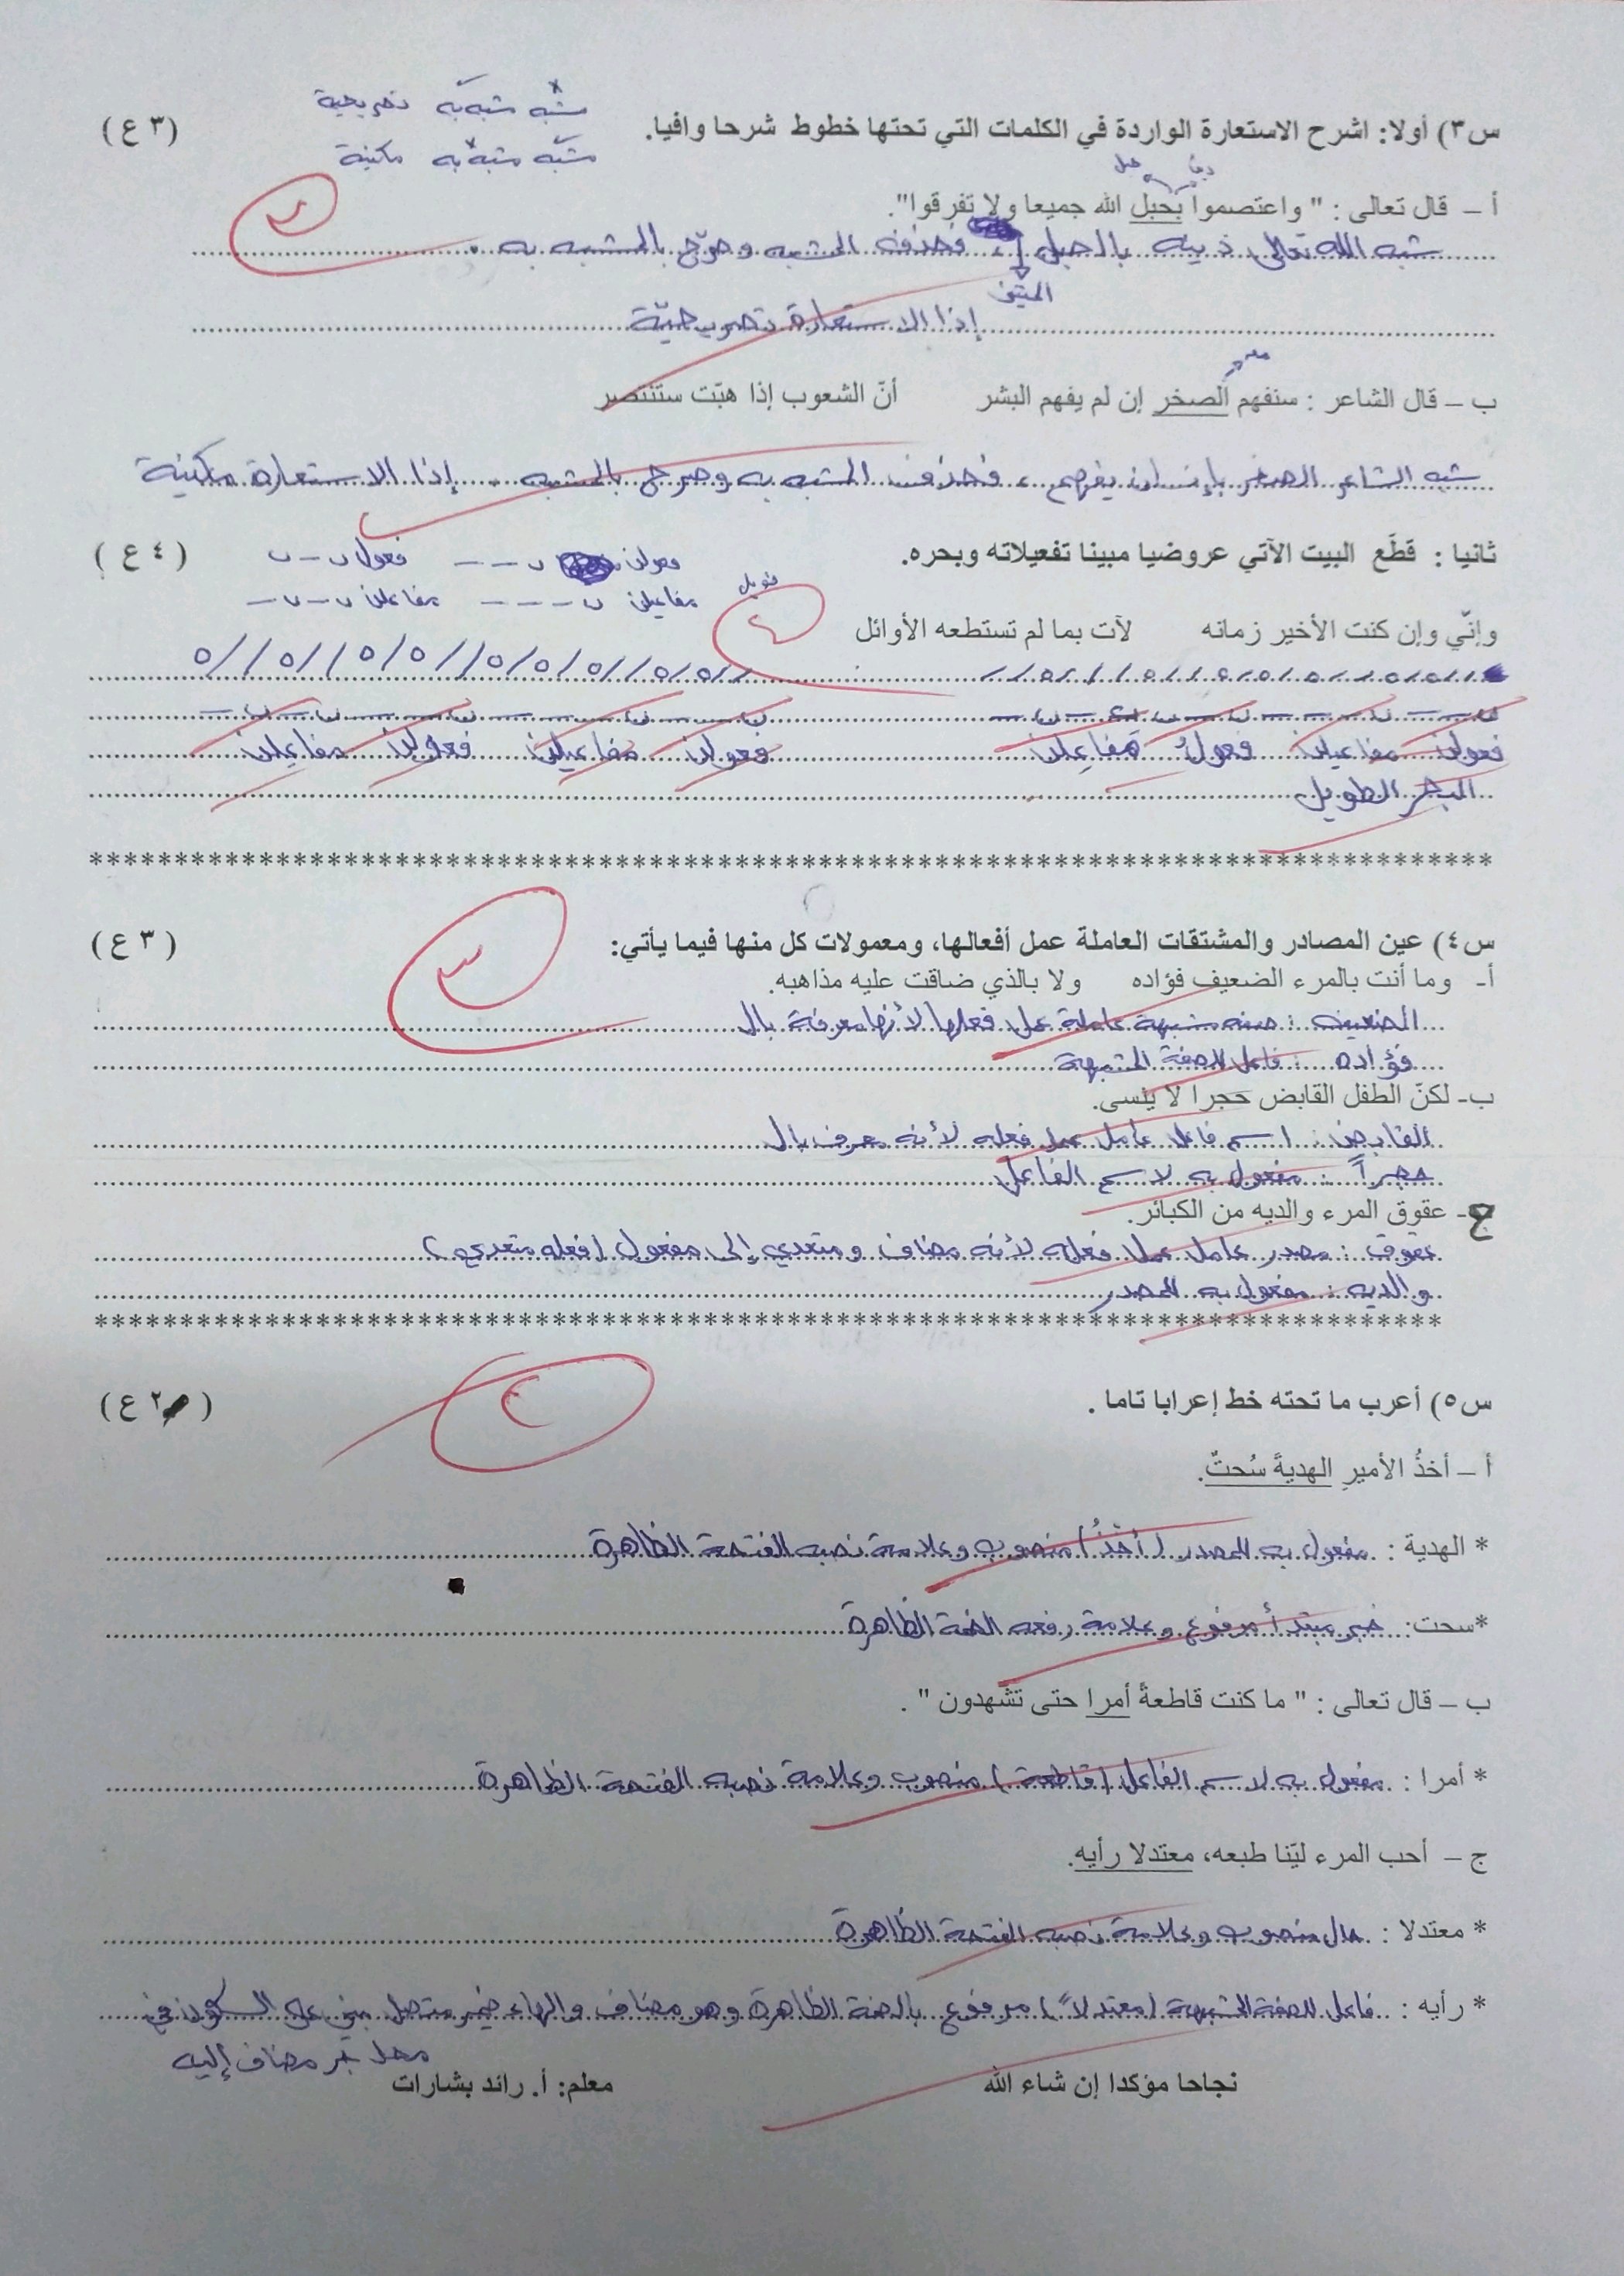 مشبه مشبه به تصريحية
س٣) أولا: اشرح الاستعارة الواردة في الكلمات التي تحتها خطوط شرحا وافيا. (٣ ع)
مشبه مشبه به مكنية
أ – قال تعالى : " واعتصموا بحبل الله جميعا ولا تفرقوا".
٢
شبه الله تعالى دينه بالحبل المتين ، فحذف المشبه وصرّح بالمشبه به .
إذا الاستعارة تصريحيّة
ب – قال الشاعر : سنفهم الصخر إن لم يفهم البشر أنّ الشعوب إذا هبّت ستنتصر
شبه الشاعر الصخر بإنسان يفهم ، فحذف المشبه به وصرح بالمشبه . إذا الاستعارة مكنية
ثانيا : قطّع البيت الآتي عروضيا مبينا تفعيلاته وبحره. (٤ ع)
فعولن ب – – فعول ب – ب
مفاعيلن ب – – – مفاعلن ب – ب –
طويل
وإنّي وإن كنت الأخير زمانه لآت بما لم تستطعه الأوائل
٤
فعولن مفاعيلن فعولُ مفاعلن فعولن مفاعيلن فعولن مفاعلن
البحر الطويل
********************************************************************************
س٤) عين المصادر والمشتقات العاملة عمل أفعالها، ومعمولات كل منها فيما يأتي: (٣ ع)
٣
أ- وما أنت بالمرء الضعيف فؤاده ولا بالذي ضاقت عليه مذاهبه.
الضعيف : صفة مشبهة عاملة عمل فعلها لأنها معرفة بال
فؤاده : فاعل للصفة المشبهة
ب- لكنّ الطفل القابض حجرا لا ينسى.
القابض : اسم فاعل عامل عمل فعله لأنه معرف بال
حجراً : مفعول به لاسم الفاعل
ج- عقوق المرء والديه من الكبائر.
عقوق : مصدر عامل عمل فعله لأنه مضاف ومتعدي إلى مفعول (فعله متعدي)
والديه : مفعول به للمصدر
********************************************************************************
س٥) أعرب ما تحته خط إعرابا تاما . (٢ ع)
أ – أخذُ الأميرِ الهديةَ سُحتٌ.
* الهدية : مفعول به للمصدر (أخذُ) منصوب وعلامة نصبه الفتحة الظاهرة
*سحت: خبر مبتدأ مرفوع وعلامة رفعه الضمة الظاهرة
ب – قال تعالى : " ما كنت قاطعةً أمرا حتى تشهدون " .
* أمرا : مفعول به لاسم الفاعل (قاطعة) منصوب وعلامة نصبه الفتحة الظاهرة
ج – أحب المرء ليّنا طبعه، معتدلا رأيه.
* معتدلا : حال منصوب وعلامة نصبه الفتحة الظاهرة
* رأيه : فاعل للصفة المشبهة (معتدلاً) مرفوع بالضمة الظاهرة وهو مضاف والهاء ضمير متصل مبني على السكون في
محل جر مضاف إليه
نجاحا مؤكدا إن شاء الله معلم: أ. رائد بشارات